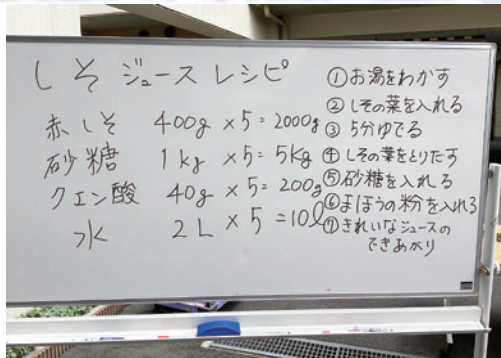 しそジュースレシピ
赤しそ 400g ×5=2000g
砂糖 1kg ×5=5kg
クエン酸 40g ×5=200g
水 2L ×5=10ℓ
①お湯をわかす
②しその葉を入れる
③5分ゆでる
④しその葉をとりだす
⑤砂糖を入れる
⑥まほうの粉を入れる
⑦きれいなジュースの
できあがり